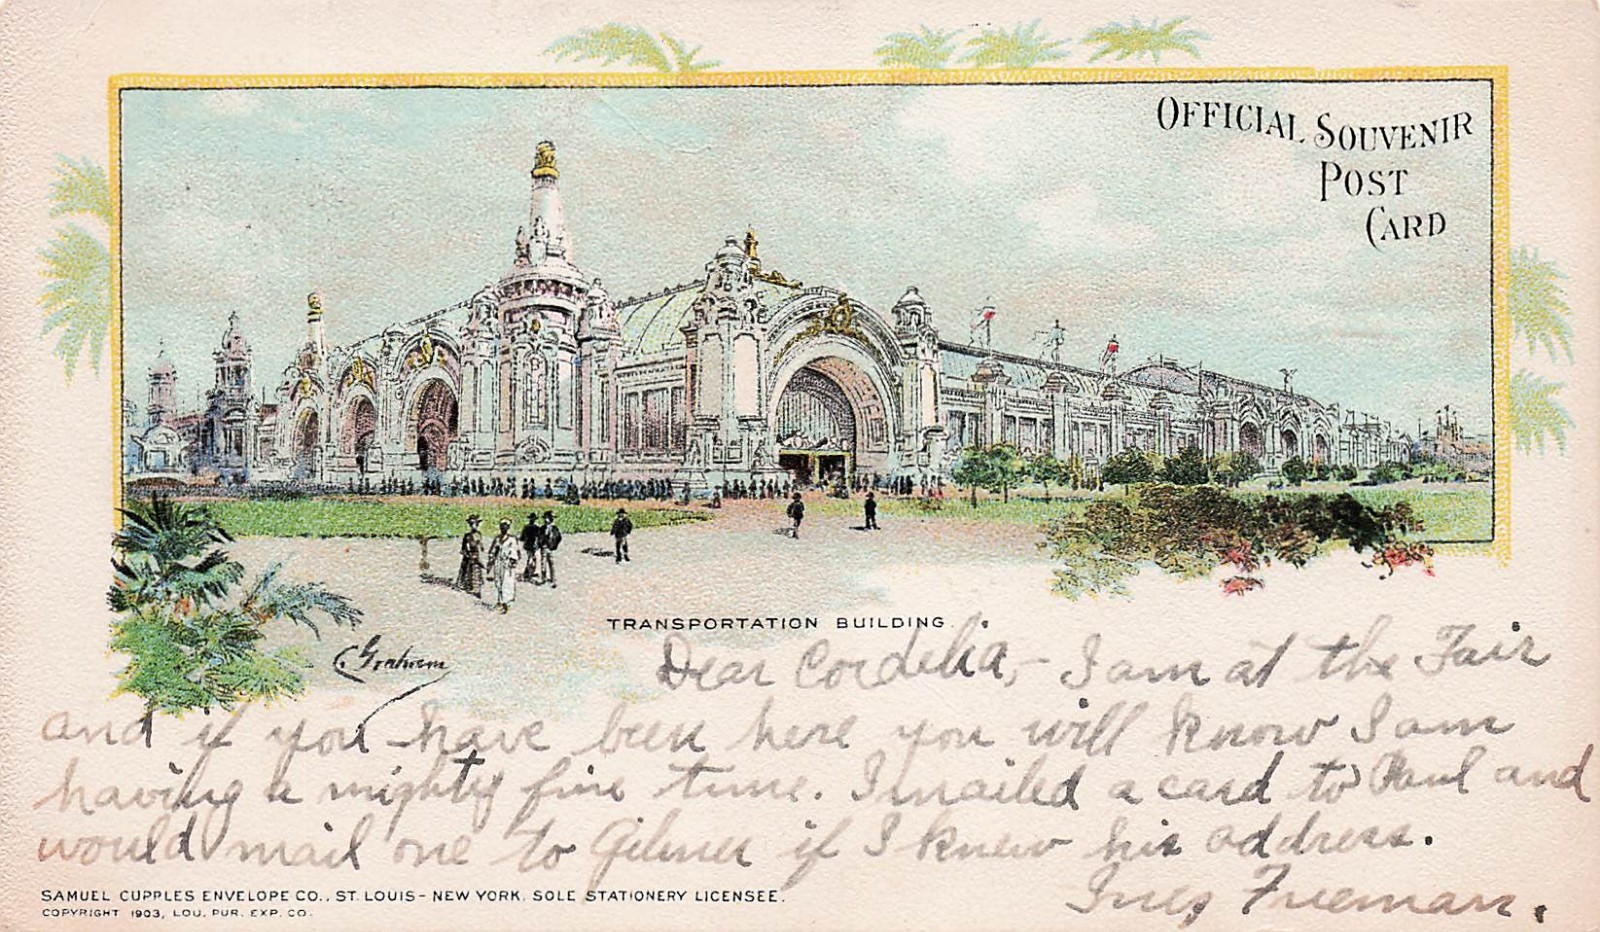 OFFICIAL SOUVENIR
POST
CARD
TRANSPORTATION BUILDING.
C. Graham
Dear Cordelia,- I am at the Fair
and if you have been here you will know I am
having a mighty fine time. I mailed a card to Paul and
would mail one to Gilmer if I knew his address.
Inez Freeman.
SAMUEL CUPPLES ENVELOPE CO., ST. LOUIS - NEW YORK, SOLE STATIONERY LICENSEE.
COPYRIGHT 1903, LOU. PUR. EXP. CO.